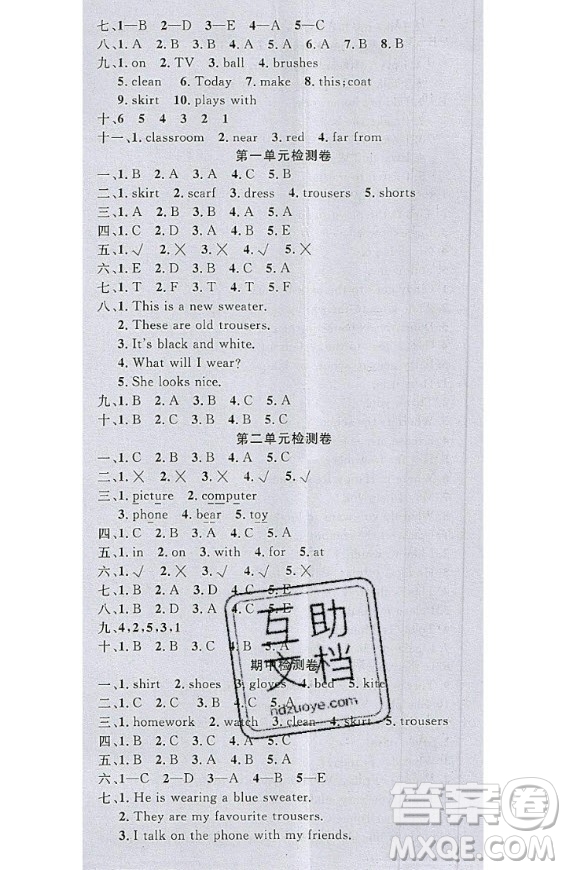 七、1—B 2—D 3—E 4—A 5—C
八、1. A 2. B 3. B 4. A 5. A 6. A 7. B 8. B
九、1. on 2. TV 3. ball 4. brushes
5. clean 6. Today 7. make 8. this;coat
9. skirt 10. plays with
十、6 5 4 3 2 1
十一、1. classroom 2. near 3. red 4. far from
第一单元检测卷
一、1. B 2. A 3. A 4. C 5. B
二、1. skirt 2. scarf 3. dress 4. trousers 5. shorts
三、1. A 2. B 3. B 4. A 5. A
四、1. C 2. D 3. B 4. E 5. A
五、1. √ 2. × 3. × 4. √ 5. ×
六、1. E 2. D 3. B 4. A 5. C
七、1. T 2. F 3. T 4. T 5. F
八、1. This is a new sweater.
2. These are old trousers.
3. It's black and white.
4. What will I wear?
5. She looks nice.
九、1. B 2. A 3. B 4. A 5. A
十、1. B 2. B 3. A 4. C 5. A
第二单元检测卷
一、1. C 2. B 3. A 4. A 5. C
二、1. × 2. × 3. √ 4. √ 5. √
三、1. picture 2. computer
3. phone 4. bear 5. toy
四、1. C 2. B 3. A 4. C 5. A
五、1. in 2. on 3. with 4. for 5. at
六、1. √ 2. × 3. × 4. √ 5. √
七、1. B 2. A 3. D 4. C 5. E
八、1. B 2. A 3. A 4. B
九、4,2,5,3,1
十、1. B 2. B 3. C 4. A
期中检测卷
一、1. shirt 2. shoes 3. gloves 4. bed 5. kite
二、1. C 2. A 3. B 4. C 5. A
三、1. homework 2. watch 3. clean 4. skirt 5. trousers
四、1. B 2. C 3. A 4. B 5. C
五、1. B 2. C 3. B 4. A 5. A
六、1—C 2—D 3—A 4—B 5—E
七、1. He is wearing a blue sweater.
2. They are my favourite trousers.
3. I talk on the phone with my friends.
互助
文档
ndzuoye.com
答案圈
MXQE.COM